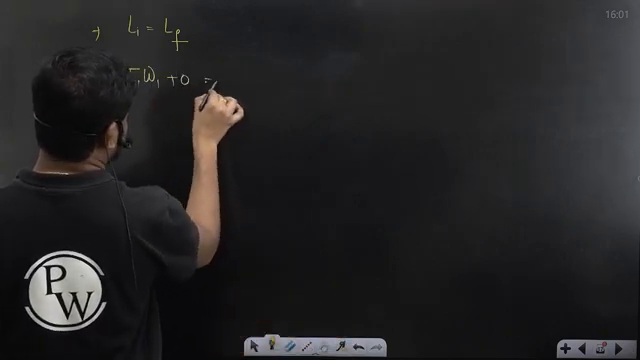 16:01
→ L₁ = L_f
W₁ + 0 =
PW